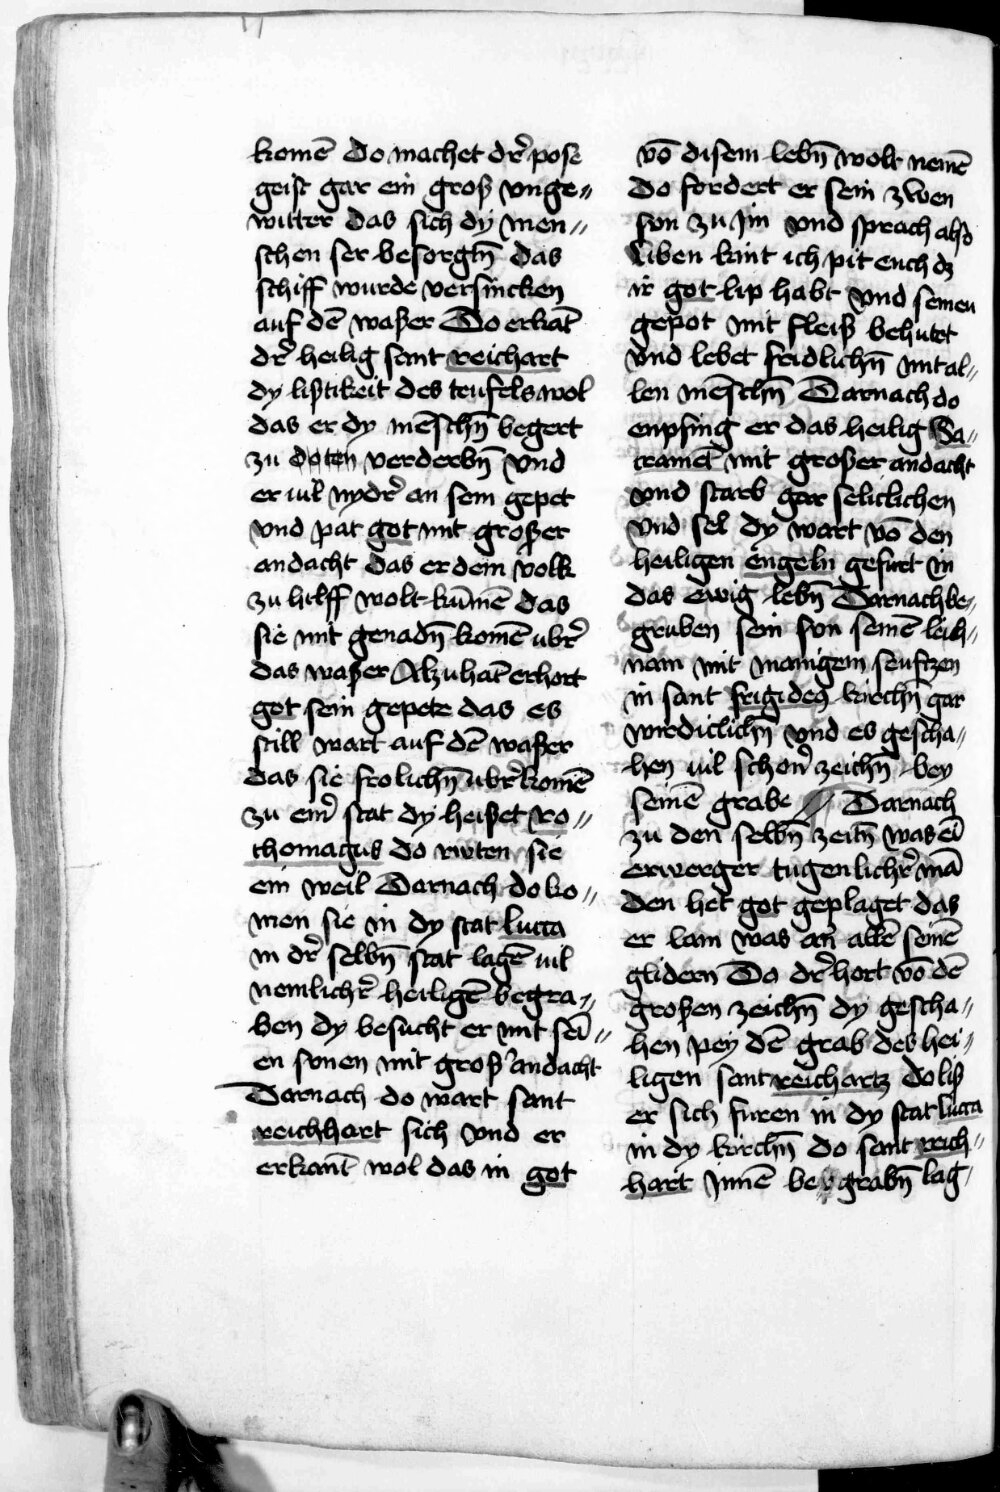 komē Do machet dr̄ pose
geist gar ein groß vnge〃
witter das sich dy men〃
schen ser besorgtn̄ das
schiff wurde versincken
auf dē waßer Do erkāt
dr̄ heilig sant reichart
dy listikeit des teufels wol
das er dy mēschn̄ begert
zu doten verderbn̄ vnd
er uil nydr̄ an sein gepet
vnd pat got mit großer
andacht das er dem volk
zu hilff wolt kūmē das
sie mit genadn̄ komē ubr̄
das waßer Alzuhāt erhort
got sein gepete das es
still wart auf dē waßer
das sie frolichn̄ ubr̄komē
zu eīr stat dy heißet ro〃
thomagus do rwten sie
ein weil Darnach do ko〃
men sie in dy stat lucca
in dr̄ selbn̄ stat lagē uil
nemlichr̄ heiligē begra〃
ben dy besucht er mit sei〃
en sonen mit groß andacht
Darnach do wart sant
reichhart sich vnd er
erkant wol das in got
vō disem lebn̄ wolt nemē
Do fordert er sein zwen
son zu Jm vnd sprach also
Liben kint ich pit euch dz
ir got lip habt vnd seinen
gepot mit fleiß behutet
vnd lebet fridlichn̄ mit al〃
len mēschn̄ Darnach do
enpfing er das heilig Sa〃
cramēt mit großer andacht
vnd starb gar seliclichen
vnd sel dy wart vō den
heiligen engeln gefurt in
das ewig lebn̄ Darnach be〃
gruben sein son seinē leich〃
nam mit manigem seuftzen
in sant frigideꝰ kirchn̄ gar
wirdiclichn̄ vnd es gescha〃
hen uil schonr̄ zeichn̄ bey
seinē grabe // Darnach
zu den selbn̄ zeitn̄ was eī
erwerger tugenlichr̄ mā
den het got geplaget das
er lam was an allē seinē
glidern Do dr̄ hort vō dē
großen zeichn̄ dy gescha〃
hen pey dē grab des hei〃
ligen sant reichartz do liß
er sich furen in dy stat lucca
in dy kirchn̄ do sant reich〃
hart Jnnē begrabn̄ lag